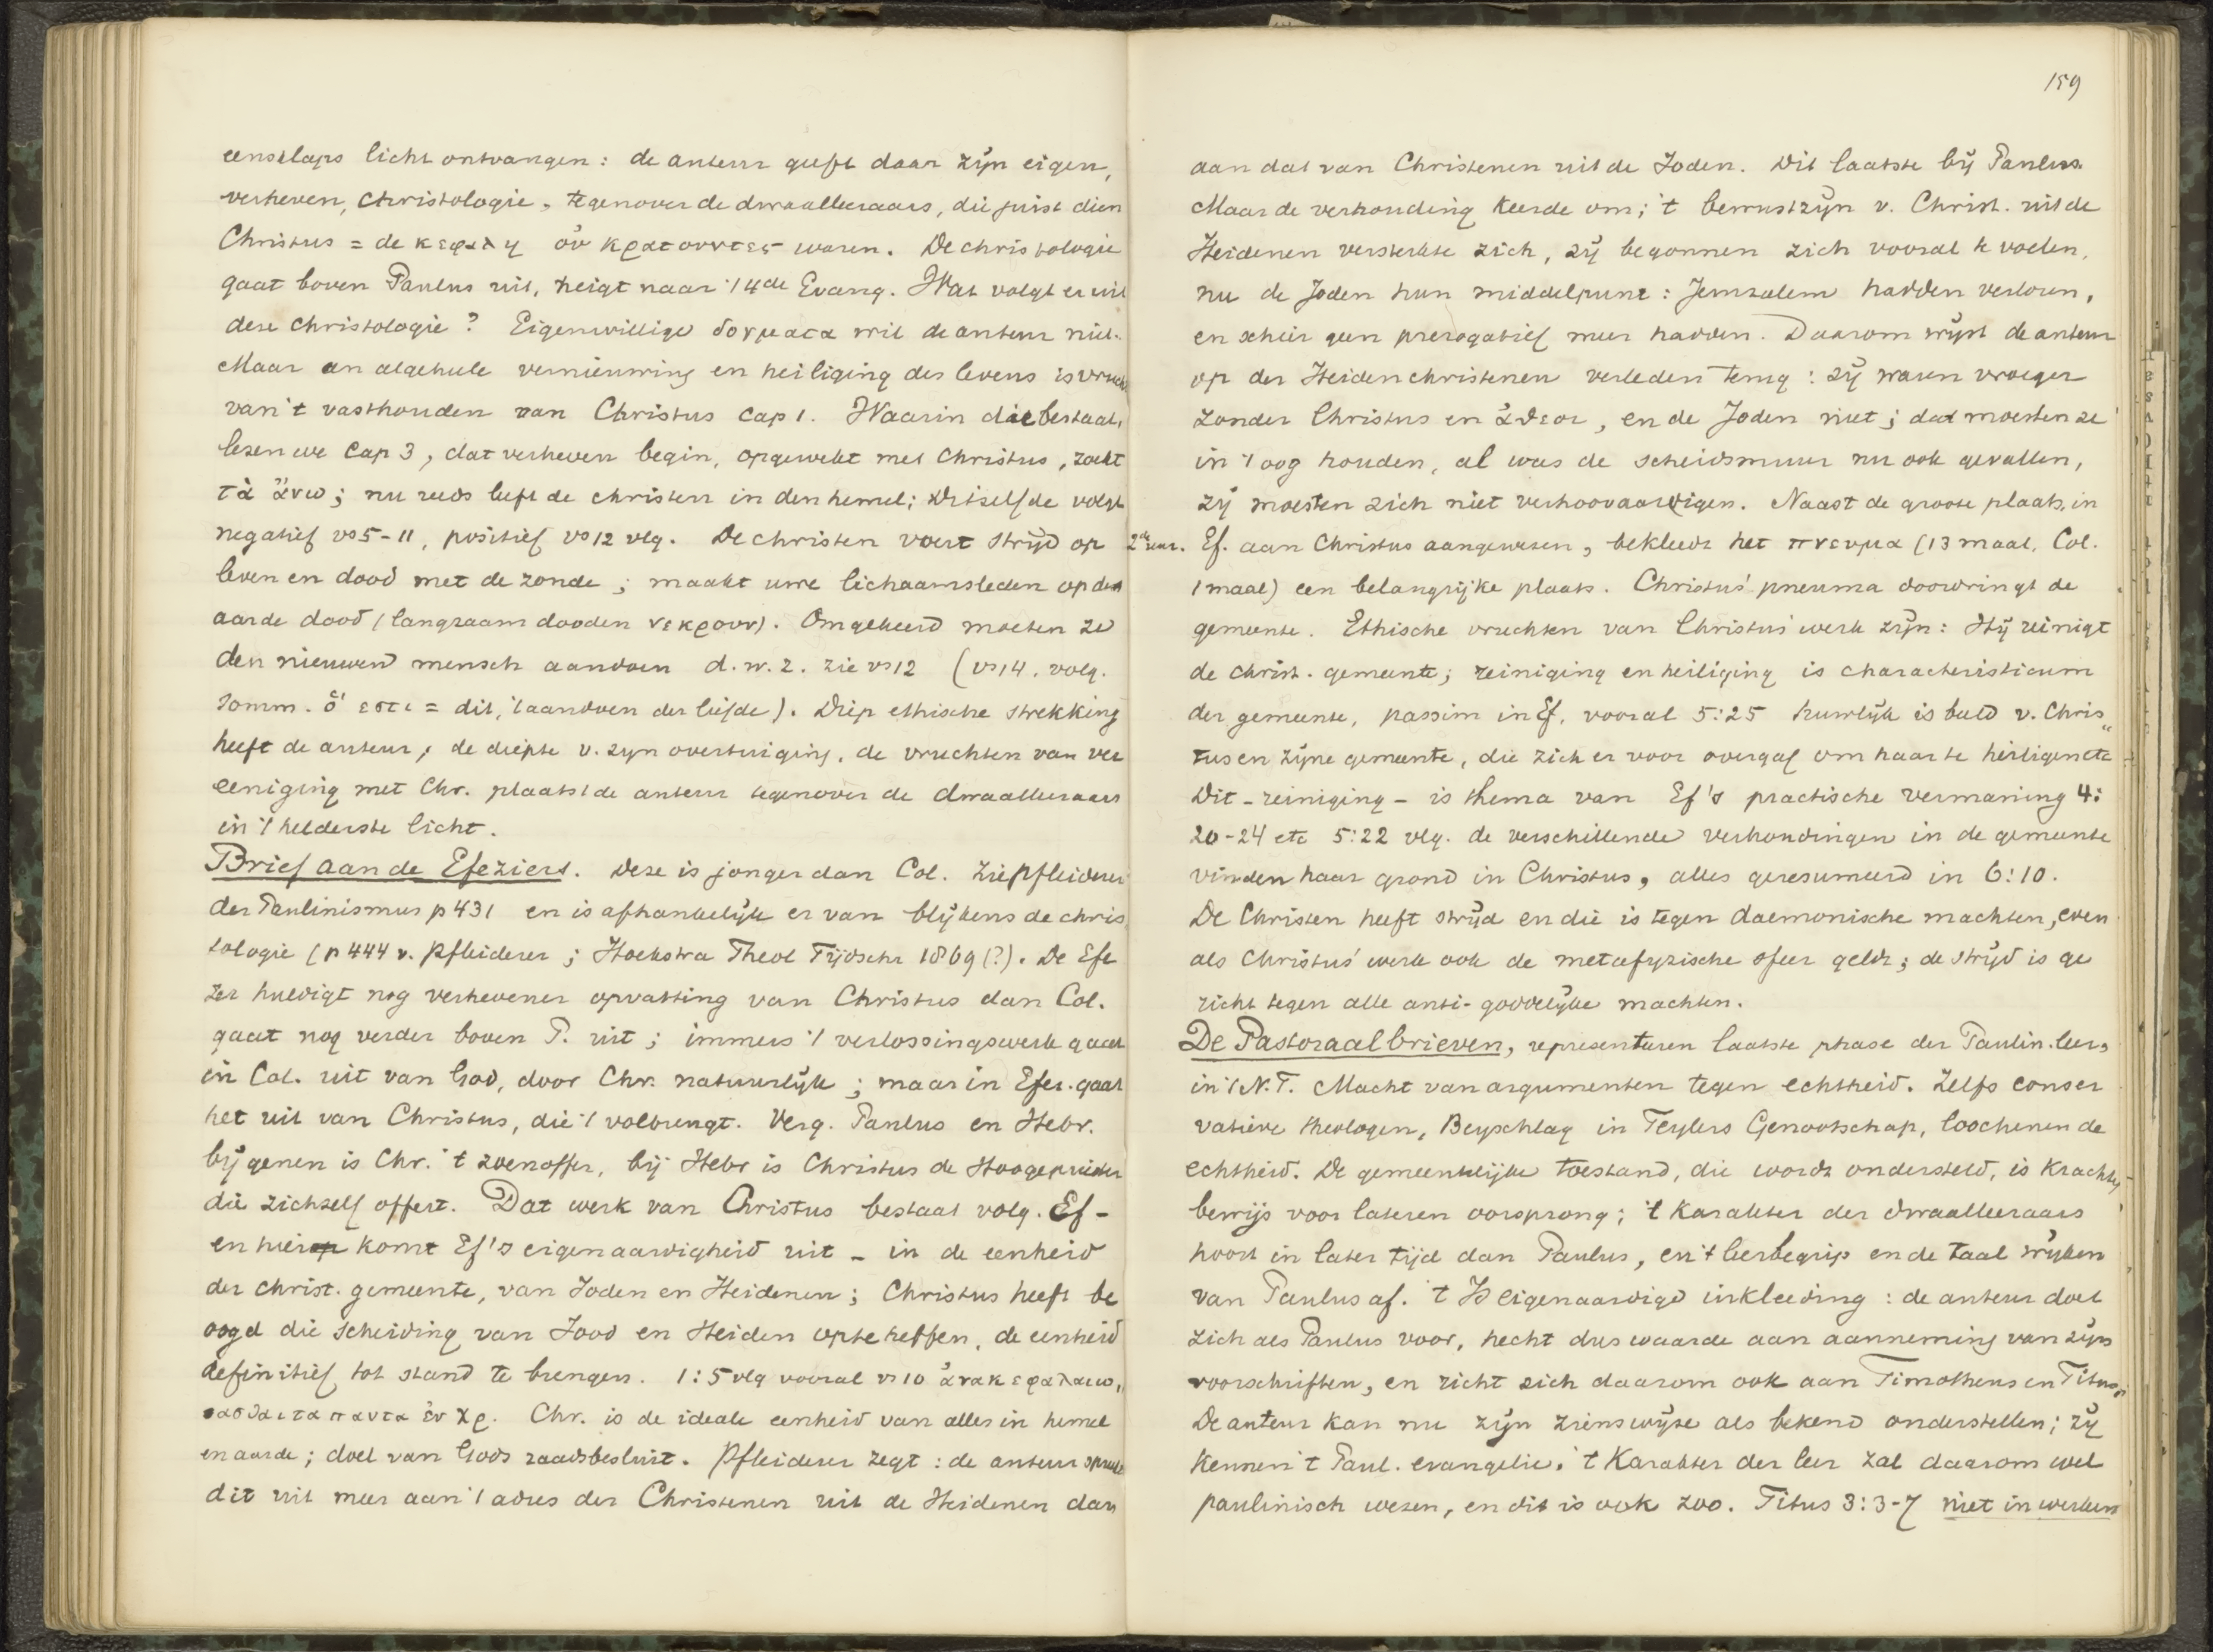 eensklaps licht ontvangen: de auteur geeft daar zijn eigen,
verheven, christologie, tegenover de dwaalleeraars, die juist dien
Christus = de κεφαλη οὐ κρατουντες waren. De christologie
gaat boven Paulus uit, neigt naar 't 4de Evang. Wat volgt er uit
deze christologie? Eigenwillige δογματα wil de auteur niet.
Maar an algeheele vernieuwing en heiliging des levens is vrucht
van 't vasthouden van Christus cap 1. Waarin die bestaat,
lezen we Cap 3, dat verheven begin, opgewekt met Christus, zoekt
τὰ ἄνω; nu reeds leeft de christen in den hemel; Ditzelfde volgt
negatief vs 5-11, positief vs 12 vlg. De christen voert strijd op
leven en dood met de zonde; maakt uwe lichaamsleden op de
aarde dood (langzaam dooden νεκρουν). Omgekeerd moeten ze
den nieuwen mensch aandoen d.w.z. zie vs 12 (vs 14, volg.
Somm. ὅ εστι = dit, 't aandoen der liefde). Diep ethische strekking
heeft de auteur, de diepte v. zyn overtuiging, de vruchten van ver
eeniging met Chr. plaatst de auteur tegenover de dwaalleeraars
in 't helderste licht.
Brief aan de Efeziers. Deze is jonger dan Col. Zie Pfleiderer
der Paulinismus p 431 en is afhankelijk er van blijkens de chris
tologie (p 444 v. Pfleiderer; Hoekstra Theol Tijdschr 1869 (?). De Efe
zer huldigt nog verhevener opvatting van Christus dan Col.
gaat nog verder boven P. uit; immers 't verlossingswerk gaat
in Col. uit van God, door Chr. natuurlijk; maar in Efez. gaat
het uit van Christus, die 't volbrengt. Verg. Paulus en Hebr.
bij genen is Chr. 't zoenoffer, bij Hebr is Christus de Hoogepriester
die zichzelf offert. Dat werk van Christus bestaat volg. Ef -
en hier komt Ef's eigenaardigheid uit - in de eenheid
der christ. gemeente, van Joden en Heidenen; Christus heeft be
oogd die scheiding van Jood en Heiden op te heffen, de eenheid
definitief tot stand te brengen. 1:5 vlg vooral vs 10 ἀνακεφαλαιω,
σασθαι τα παντα ἐν Χρ. Chr. is de ideale eenheid van alles in hemel
en aarde; doel van Gods raadsbesluit. Pfleiderer zegt: de auteur spreekt
dit uit meer aan 't adres der Christenen uit de Heidenen dan
159
aan dat van Christenen uit de Joden. Dit laatste bij Paulus.
Maar de verhouding keerde om; 't bewustzijn v. Christ. uit de
Heidenen versterkte zich, zij begonnen zich vooral te voelen,
nu de Joden hun middelpunt: Jeruzalem hadden verloren,
en schier geen prerogatief meer hadden. Daarom wijst de auteur
op der Heidenchristenen verleden terug: zij waren vroeger
zonder Christus en ἄθεοι, en de Joden niet; dat moesten ze
in 't oog houden, al was de scheidsmuur nu ook gevallen,
zij moesten zich niet verhoovaardigen. Naast de groote plaats, in
Ef. aan Christus aangewezen, bekleedt het πνευμα (13 maal, Col.
1 maal) een belangrijke plaats. Christus' pneuma doordringt de
gemeente. Ethische vruchten van Christus' werk zijn: Hij reinigt
de christ. gemeente; reiniging en heiliging is characteristicum
der gemeente, passim in Ef, vooral 5:25 huwlijk is beeld v. Chris„
tus en zijne gemeente, die zich er voor overgaf om haar te heiligen etc
Dit - reiniging - is thema van Ef's practische vermaning 4:
20-24 etc 5:22 vlg. de verschillende verhoudingen in de gemeente
vinden haar grond in Christus, alles geresumeerd in 6:10.
De Christen heeft strijd en die is tegen daemonische machten, even
als Christus' werk ook de metafyzische sfeer geldt; de strijd is ge
richt tegen alle anti-goddelijke machten.
De Pastoraalbrieven, representeren laatste phase der Paulin. leer,
in 't N.T. Macht van argumenten tegen echtheid. Zelfs conser
vatieve theologen, Beyschlag in Teylers Genootschap, loochenen de
echtheid. De gemeentelijke toestand, die wordt ondersteld, is krachtig
bewijs voor lateren oorsprong; 't karakter der dwaalleeraars
hoort in later tijd dan Paulus, en 't leerbegrip en de taal wijken
van Paulus af. 't Is eigenaardige inkleeding: de auteur doet
zich als Paulus voor, hecht dus waarde aan aanneming van zijn
voorschriften, en richt zich daarom ook aan Timotheus en Titus.
De auteur kan nu zijn zienswijze als bekend onderstellen; zij
kennen 't Paul. evangelie. 't Karakter der leer zal daarom wel
paulinisch wezen, en dit is ook zoo. Titus 3:3-7 niet in werken